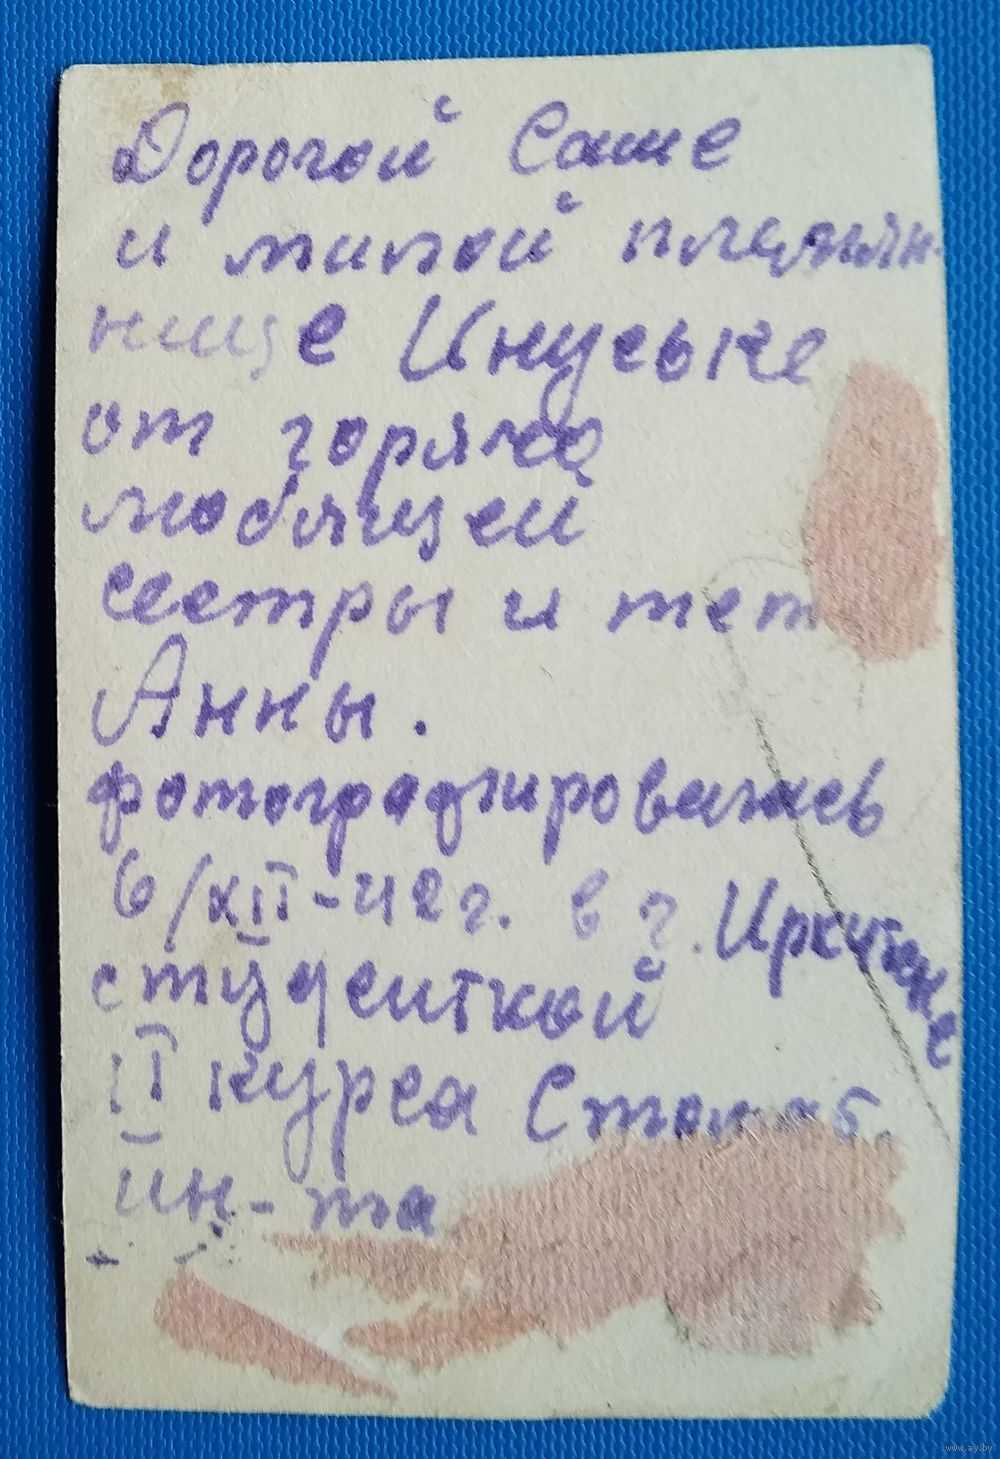 Дорогой Саше
и милой племян-
нице Инуське
от горячо
любящей
сестры и тет
Анны.
фотографировалась
6/XII-42г. в г. Иркутске
студенткой
II курса Стомат.
ин-та
www.ay.by